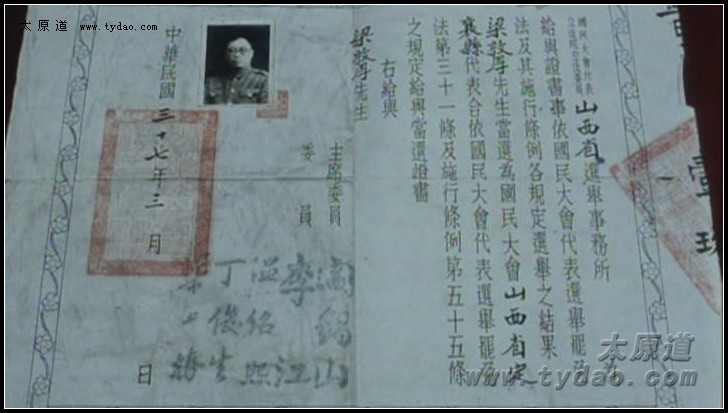 太原道 www.tydao.com
國民大會代表
立法院立法委員
山西省選舉事務所
給與證書事依國民大會代表選舉罷免
法及其施行條例各規定選舉之結果
梁敦厚先生當選為國民大會山西省定
襄縣代表合依國民大會代表選舉罷免
法第三十一條及施行條例第五十五條
之規定給與當選證書
右給與
梁敦厚先生
主席委員
委員
閻錫山
李江
溫紹熙
丁俊生
梁上椿
中華民國三十七年三月
日
壹
太原道
www.tydao.com